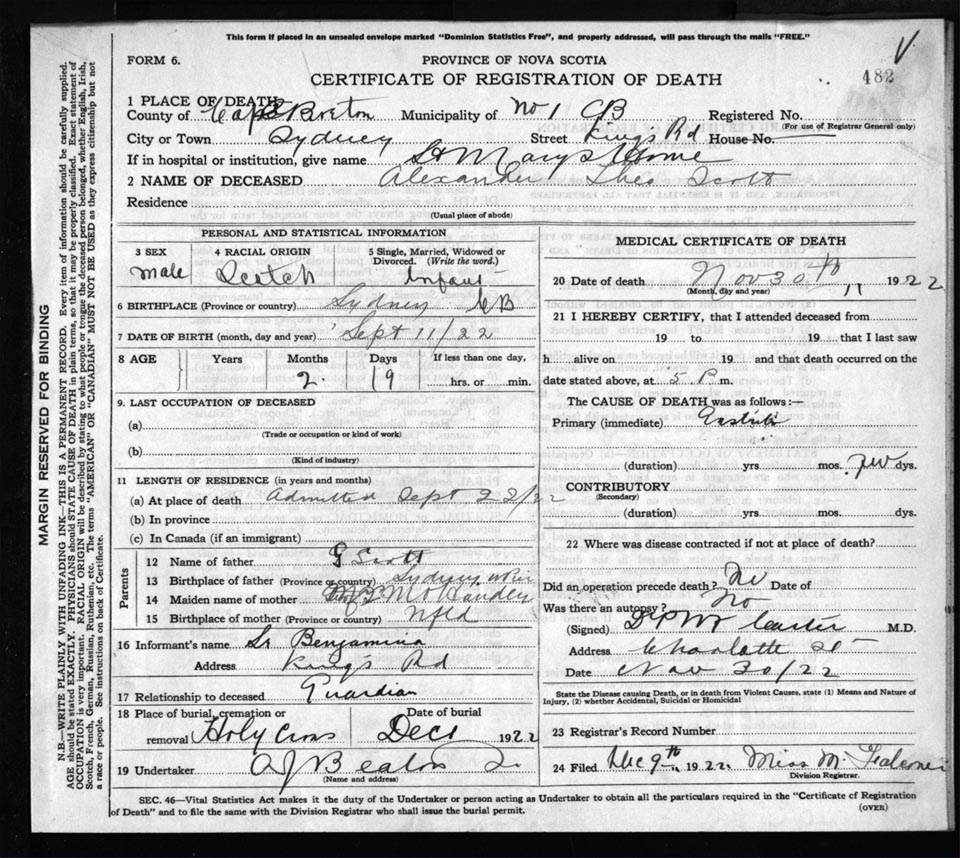 This form if placed in an unsealed envelope marked "Dominion Statistics Free", and properly addressed, will pass through the mails "FREE."
FORM 6.
PROVINCE OF NOVA SCOTIA
CERTIFICATE OF REGISTRATION OF DEATH
482
1 PLACE OF DEATH
County of Cape Breton Municipality of No 1 CB Registered No.
(For use of Registrar General only)
City or Town Sydney Street Kings Rd House No.
If in hospital or institution, give name St Marys Home
2 NAME OF DECEASED Alexander Theo Scott
Residence
(Usual place of abode)
PERSONAL AND STATISTICAL INFORMATION
3 SEX 4 RACIAL ORIGIN 5 Single, Married, Widowed or Divorced. (Write the word.)
Male Scotch Infant
6 BIRTHPLACE (Province or country) Sydney CB
7 DATE OF BIRTH (month, day and year) Sept 11/22
8 AGE Years Months Days If less than one day,
2 19 hrs. or min.
9. LAST OCCUPATION OF DECEASED
(a)
(Trade or occupation or kind of work)
(b)
(Kind of industry)
11 LENGTH OF RESIDENCE (in years and months)
(a) At place of death admitted Sept 22/22
(b) In province
(c) In Canada (if an immigrant)
Parents
12 Name of father G Scott
13 Birthplace of father (Province or country) Sydney
14 Maiden name of mother
15 Birthplace of mother (Province or country) Nfld
16 Informant's name Sr Benjamina
Address Kings Rd
17 Relationship to deceased Guardian
18 Place of burial, cremation or removal Holy Cross Date of burial Dec 1 1922
19 Undertaker A J Beaton
(Name and address)
MEDICAL CERTIFICATE OF DEATH
20 Date of death Nov 30th 1922
(Month, day and year)
21 I HEREBY CERTIFY, that I attended deceased from
19 to 19 that I last saw
h alive on 19 and that death occurred on the
date stated above, at 5 P. m.
The CAUSE OF DEATH was as follows:—
Primary (immediate)
(duration) yrs. mos. few dys.
CONTRIBUTORY
(Secondary)
(duration) yrs. mos. dys.
22 Where was disease contracted if not at place of death?
Did an operation precede death? No Date of
Was there an autopsy? No
(Signed) M.D.
Address Charlotte St
Date Nov 30/22
State the Disease causing Death, or in death from Violent Causes, state (1) Means and Nature of Injury, (2) whether Accidental, Suicidal or Homicidal
23 Registrar's Record Number
24 Filed Dec 9th 1922. Miss M.
Division Registrar.
SEC. 46—Vital Statistics Act makes it the duty of the Undertaker or person acting as Undertaker to obtain all the particulars required in the "Certificate of Registration
of Death" and to file the same with the Division Registrar who shall issue the burial permit.
(OVER)
MARGIN RESERVED FOR BINDING
N.B.—WRITE PLAINLY WITH UNFADING INK—THIS IS A PERMANENT RECORD. Every item of information should be carefully supplied.
AGE should be stated EXACTLY. PHYSICIANS should STATE CAUSE OF DEATH in plain terms, so that it may be properly classified. Exact statement of
OCCUPATION is very important. RACIAL ORIGIN will be described by stating to what people or tongue the deceased person belonged, whether English, Irish,
Scotch, French, German, Russian, Ruthenian, etc. The terms "AMERICAN" OR "CANADIAN" MUST NOT BE USED as they express citizenship but not
a race or people. See instructions on back of Certificate.